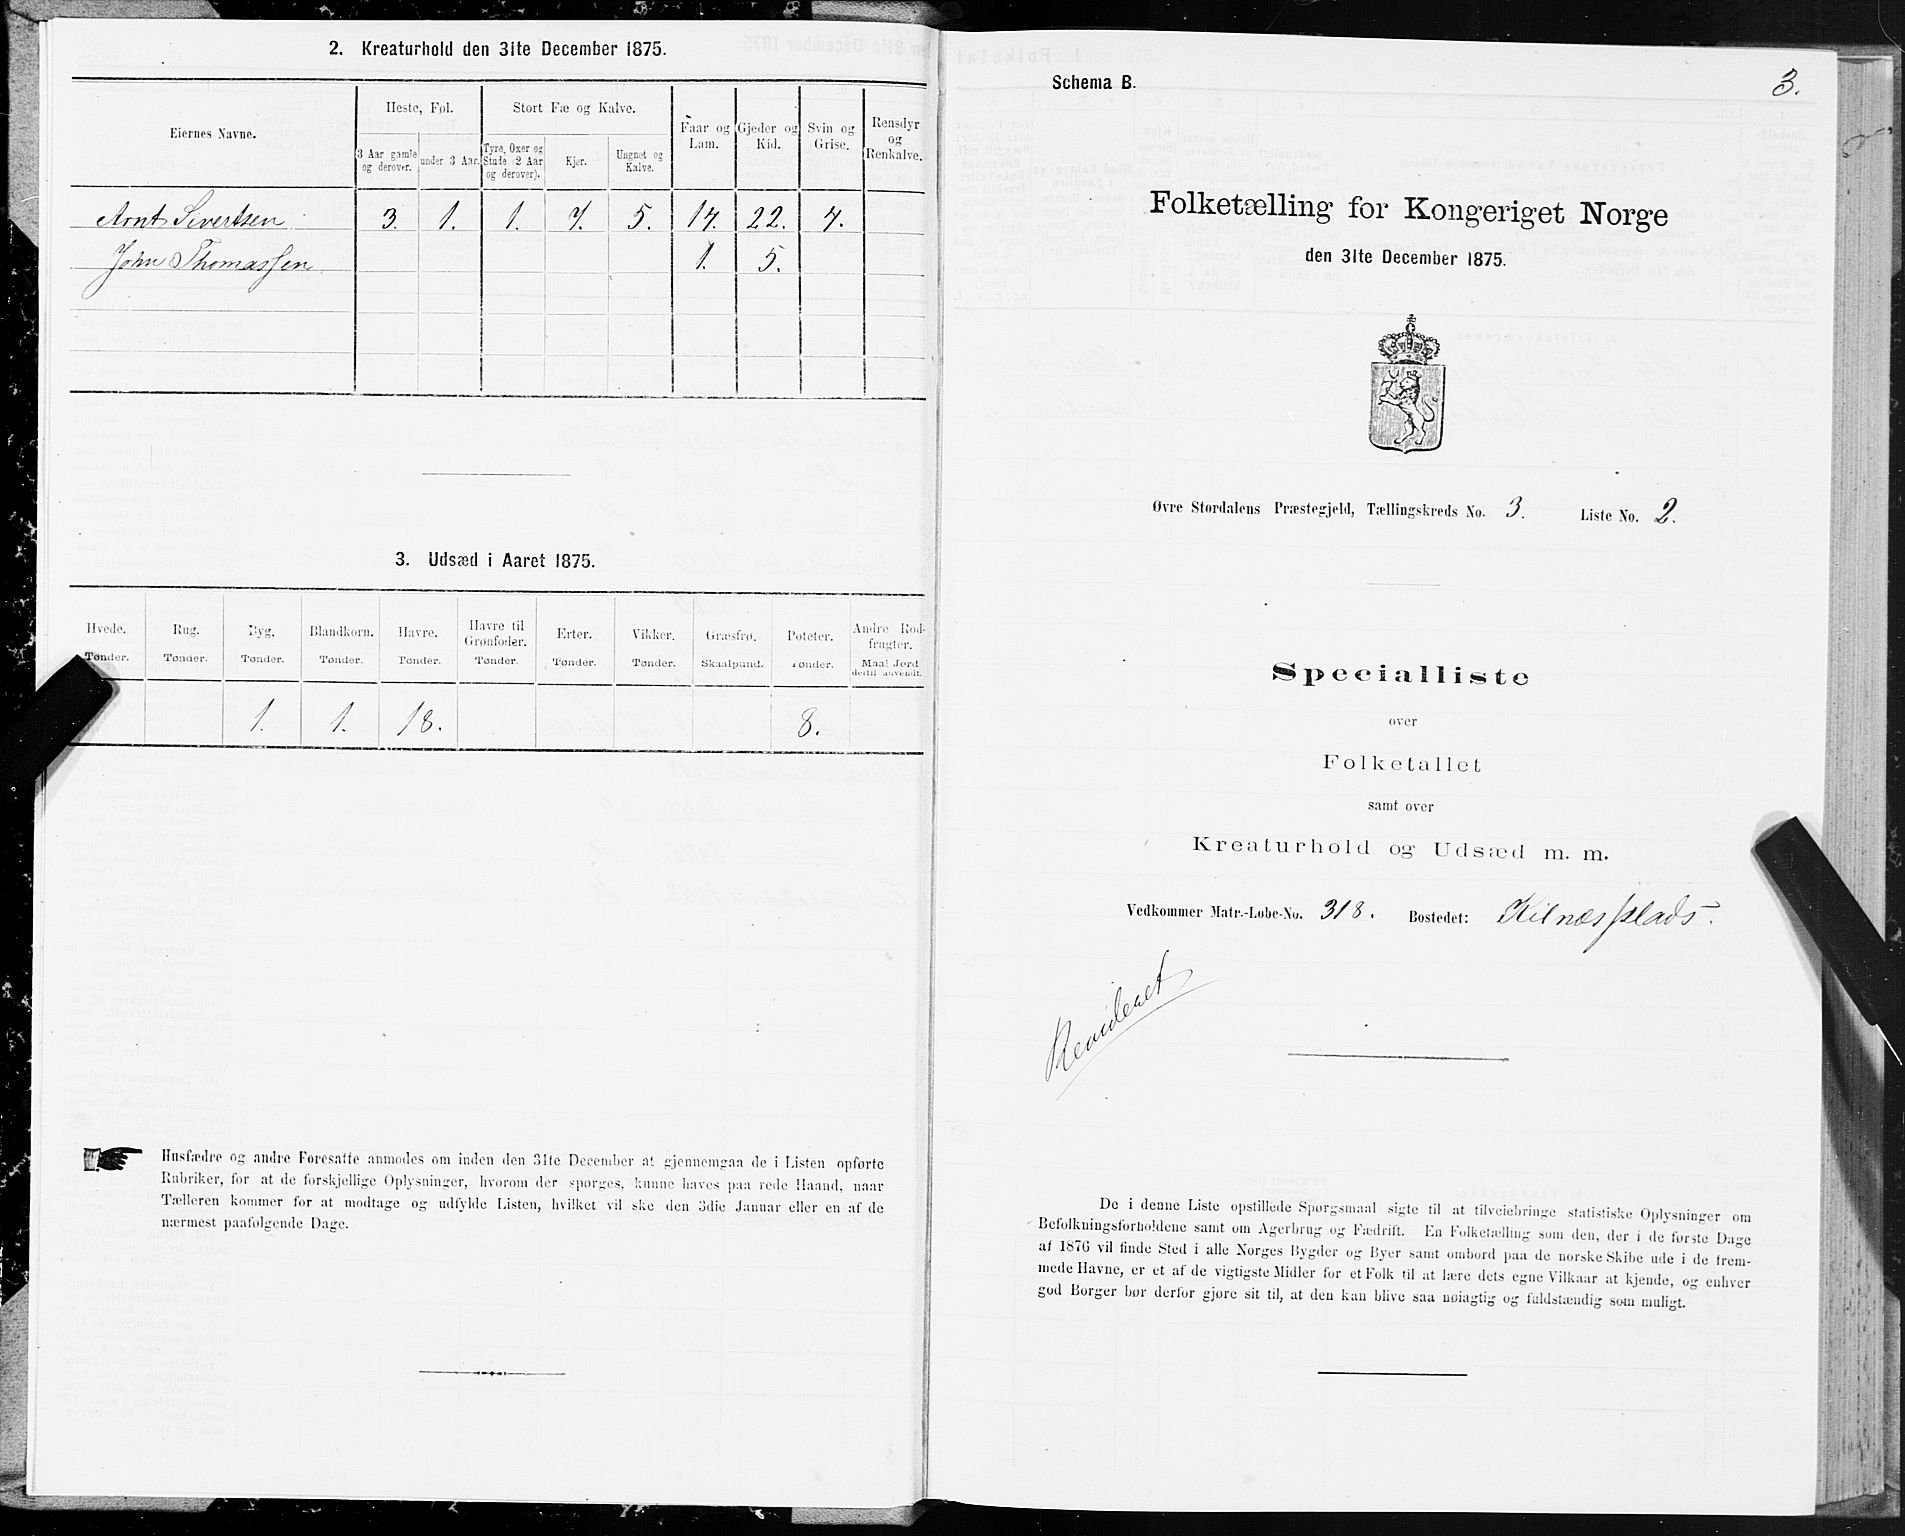 2. Kreaturhold den 31te December 1875.
Eiernes Navne.
Heste, Føl.
Stort Fæ og Kalve.
Faar og Lam.
Gjeder og Kid.
Svin og Grise.
Rensdyr og Renkalve.
3 Aar gamle og derover.
under 3 Aar.
Tyre, Oxer og Stude (2 Aar og derover).
Kjør.
Ungnøt og Kalve.
Arnt Sivertsen 3. 1. 1. 7. 5. 14. 22. 4.
John Thomassen 1. 5.
3. Udsæd i Aaret 1875.
Hvede. Rug. Byg. Blandkorn. Havre. Havre til Grønfoder. Erter. Vikker. Græsfrø. Poteter. Andre Rodfrugter.
Tønder. Tønder. Tønder. Tønder. Tønder. Tønder. Tønder. Tønder. Skaalpund. Tønder. Maal Jord dertil anvendt.
1. 1. 18. 8.
Husfædre og andre Foresatte anmodes om inden den 31te December at gjennemgaa de i Listen opførte
Rubriker, for at de forskjellige Oplysninger, hvorom der spørges, kunne haves paa rede Haand, naar
Tælleren kommer for at modtage og udfylde Listen, hvilket vil ske den 3die Januar eller en af de
nærmest paafølgende Dage.
Schema B.
3.
Folketælling for Kongeriget Norge
den 31te December 1875.
Øvre Størdalens Præstegjeld, Tællingskreds No. 3. Liste No. 2.
Specialliste
over
Folketallet
samt over
Kreaturhold og Udsæd m. m.
Vedkommer Matr.-Løbe-No. 318. Bostedet: Kilnæsplads.
Revideret
De i denne Liste opstillede Spørgsmaal sigte til at tilveiebringe statistiske Oplysninger om
Befolkningsforholdene samt om Agerbrug og Fædrift. En Folketælling som den, der i de første Dage
af 1876 vil finde Sted i alle Norges Bygder og Byer samt ombord paa de norske Skibe ude i de frem-
mede Havne, er et af de vigtigste Midler for et Folk til at lære dets egne Vilkaar at kjende, og enhver
god Borger bør derfor gjøre sit til, at den kan blive saa nøiagtig og fuldstændig som muligt.